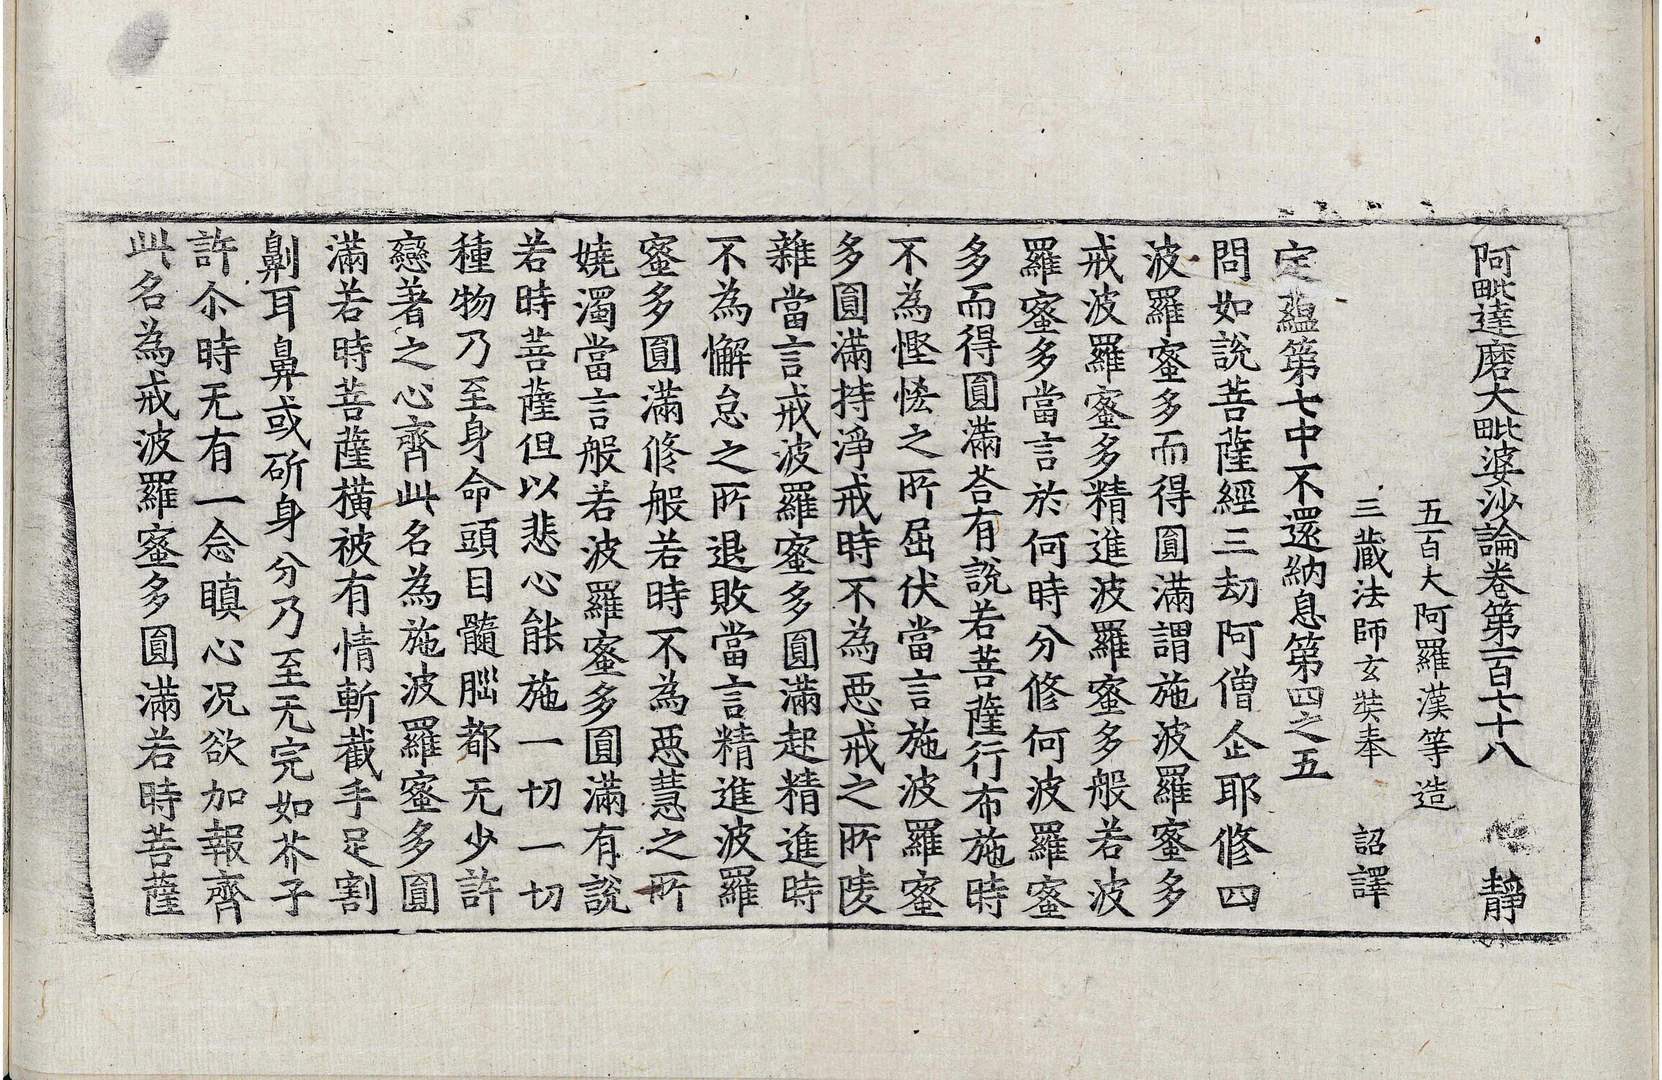 阿毗達磨大毗婆沙論卷第一百七十八　靜
五百大阿羅漢等造
三藏法師玄奘奉　詔譯
定蘊第七中不還納息第四之五
問如說菩薩經三劫阿僧企耶修四
波羅蜜多而得圓滿謂施波羅蜜多
戒波羅蜜多精進波羅蜜多般若波
羅蜜多當言於何時分修何波羅蜜
多而得圓滿荅有說若菩薩行布施時
不為慳悋之所屈伏當言施波羅蜜
多圓滿持淨戒時不為惡戒之所陵
雜當言戒波羅蜜多圓滿起精進時
不為懈怠之所退敗當言精進波羅
蜜多圓滿修般若時不為惡慧之所
嬈濁當言般若波羅蜜多圓滿有說
若時菩薩但以悲心能施一切一切
種物乃至身命頭目髓腦都无少許
戀著之心齊此名為施波羅蜜多圓
滿若時菩薩橫被有情斬截手足割
劓耳鼻或斫身分乃至无完如芥子
許尒時无有一念瞋心况欲加報齊
此名為戒波羅蜜多圓滿若時菩薩